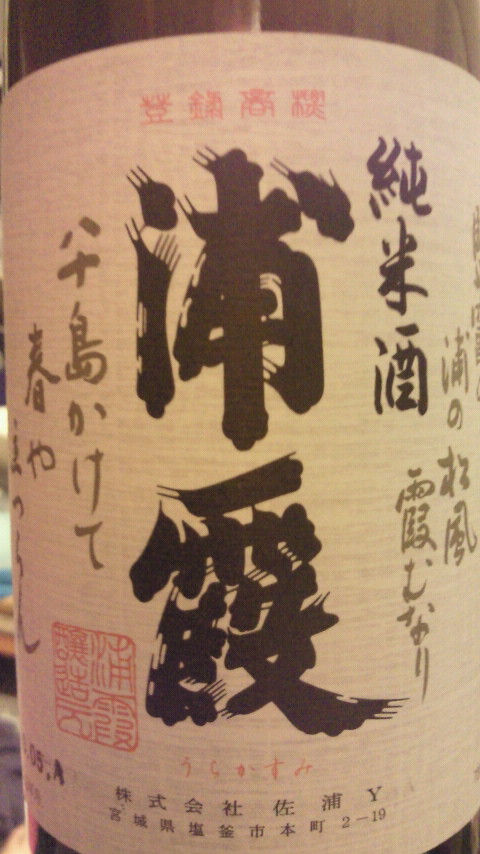 登録商標
純米酒
浦霞
浦の松風
霞むなり
八十島かけて
春や立つらん
浦霞
醸造元
うらかすみ
株式会社 佐浦 Y
宮城県塩釜市本町2-19
05.A